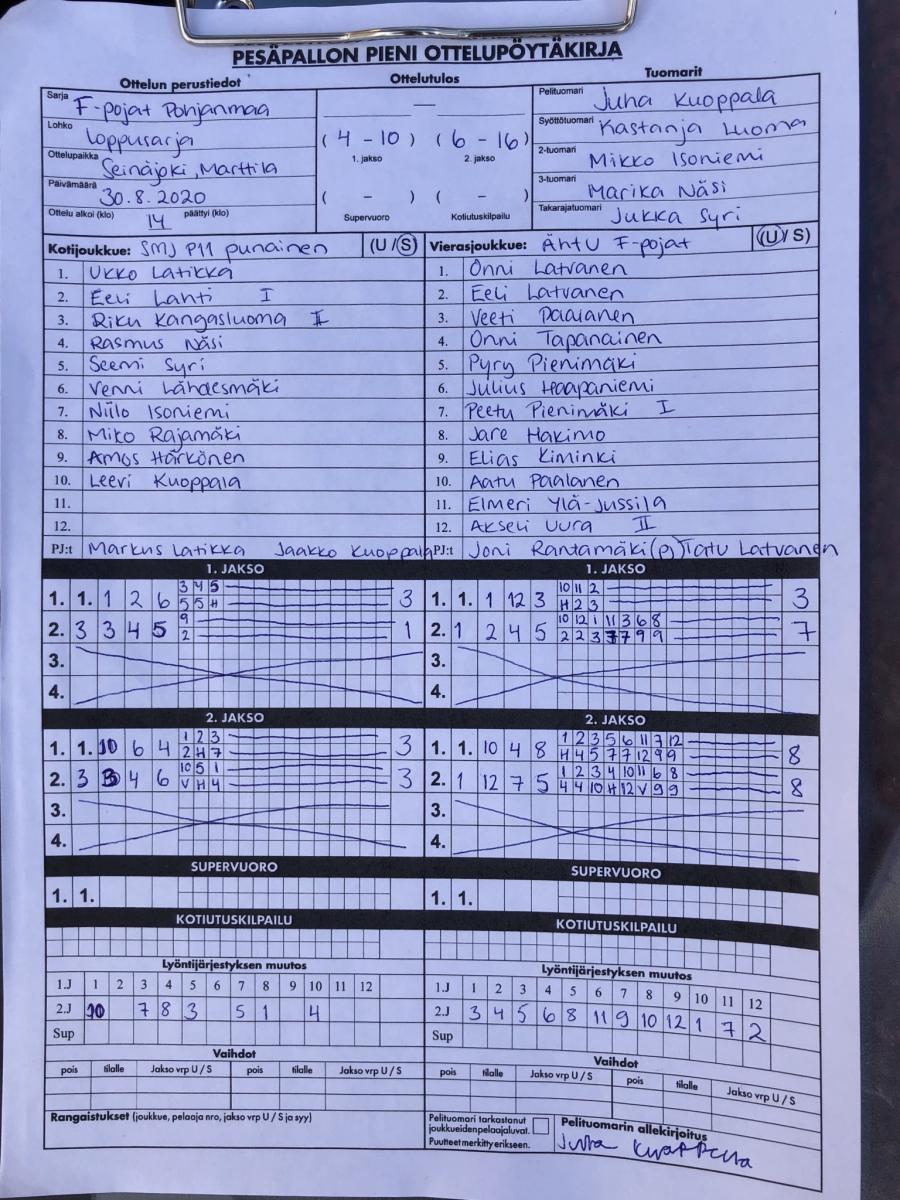 PESÄPALLON PIENI OTTELUPÖYTÄKIRJA
Ottelun perustiedot Ottelutulos Tuomarit
Sarja F-pojat Pohjanmaa — Pelituomari Juha Kuoppala
Lohko Loppusarja ( 4 - 10 ) ( 6 - 16 ) Syöttötuomari Kastanja Luoma
Ottelupaikka Seinäjoki, Marttila 1. jakso 2. jakso 2-tuomari Mikko Isoniemi
Päivämäärä 30.8.2020 ( - ) ( - ) 3-tuomari Marika Näsi
Ottelu alkoi (klo) 14 päättyi (klo) Supervuoro Kotiutuskilpailu Takarajatuomari Jukka Syri
Kotijoukkue: SMJ P11 punainen (U/S) Vierasjoukkue: ÄhTU F-pojat (U/S)
1. Ukko Latikka 1. Onni Latvanen
2. Eeli Lahti I 2. Eeli Latvanen
3. Riku Kangasluoma II 3. Veeti Paalanen
4. Rasmus Näsi 4. Onni Tapanainen
5. Seemi Syri 5. Pyry Pienimäki
6. Venni Lähdesmäki 6. Julius Haapaniemi
7. Niilo Isoniemi 7. Peetu Pienimäki I
8. Miko Rajamäki 8. Jare Hakimo
9. Amos Härkönen 9. Elias Kiminki
10. Leevi Kuoppala 10. Aatu Paalanen
11. 11. Elmeri Ylä-Jussila
12. 12. Akseli Uura II
PJ:t Markus Latikka Jaakko Kuoppala PJ:t Joni Rantamäki (p) Tatu Latvanen
1. JAKSO 1. JAKSO
3 4 5 10 11 2
1. 1. 1 2 6 3 1. 1. 1 12 3 3
5 5 H H 2 3
9 10 12 1 11 3 6 8
2. 3 3 4 5 1 2. 1 2 4 5 7
2 2 2 3 7 7 9 9
3. 3.
4. 4.
2. JAKSO 2. JAKSO
1 2 3 1 2 3 5 6 11 7 12
1. 1. 10 6 4 3 1. 1. 10 4 8 8
2 H 7 H 4 5 7 7 12 9 9
10 5 1 1 2 3 4 10 11 6 8
2. 3 3 4 6 3 2. 1 12 7 5 8
V H 4 4 4 10 H 12 V 9 9
3. 3.
4. 4.
SUPERVUORO SUPERVUORO
1. 1. 1. 1.
KOTIUTUSKILPAILU KOTIUTUSKILPAILU
Lyöntijärjestyksen muutos Lyöntijärjestyksen muutos
1.J 1 2 3 4 5 6 7 8 9 10 11 12 1.J 1 2 3 4 5 6 7 8 9 10 11 12
2.J 10 7 8 3 5 1 4 2.J 3 4 5 6 8 11 9 10 12 1 7 2
Sup Sup
Vaihdot Vaihdot
pois tilalle Jakso vrp U / S pois tilalle Jakso vrp U / S pois tilalle Jakso vrp U / S pois tilalle Jakso vrp U / S
Rangaistukset (joukkue, pelaaja nro, jakso vrp U / S ja syy) Pelituomari tarkastanut
joukkueiden pelaajaluvat.
Puutteet merkitty erikseen.
Pelituomarin allekirjoitus
Juha Kuoppala